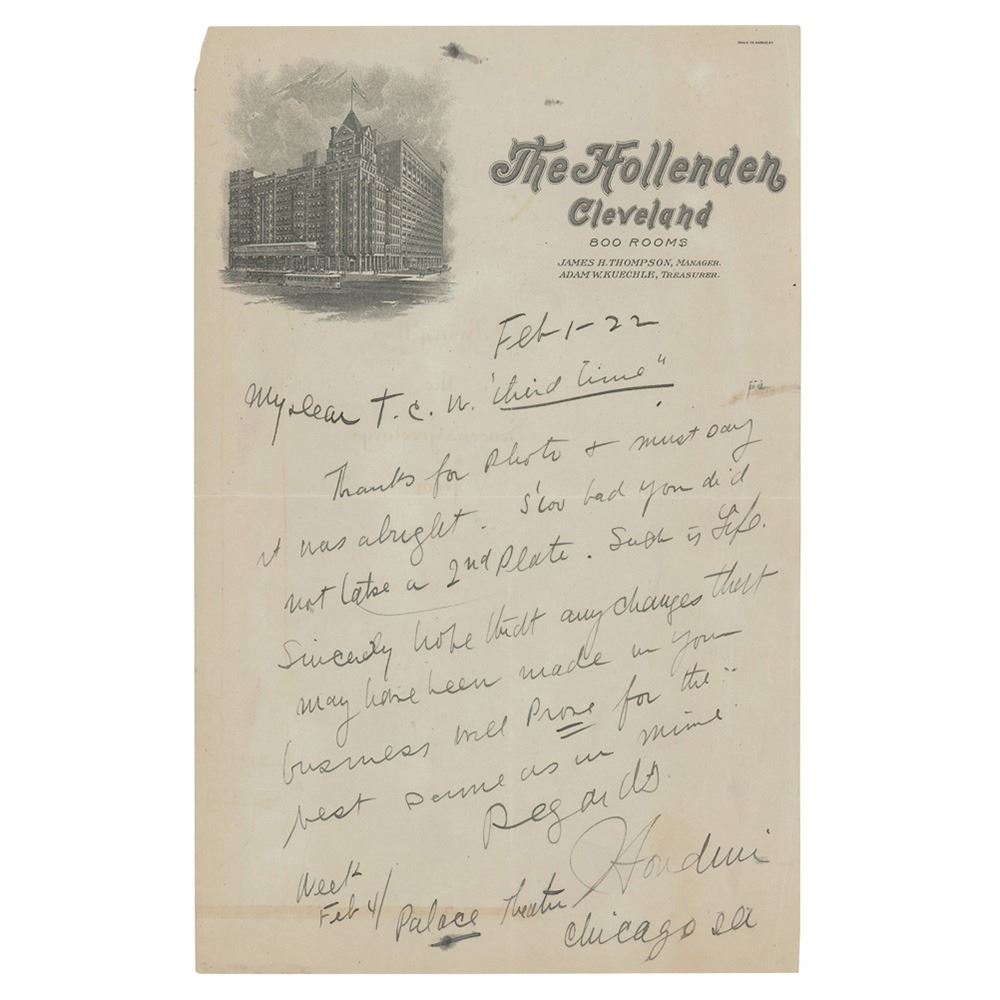 The Hollenden
Cleveland
800 ROOMS
JAMES H. THOMPSON, MANAGER.
ADAM W. KUECHLE, TREASURER.
Feb 1-22
My dear T. C. W. "third time"
Thanks for Photo & must say
it was alright. S'too bad you did
not take a 2nd Plate. Such is Life.
Sincerely hope that any changes that
may have been made in your
business will Prove for the
best same as in mine.
Regards
Houdini
Week
Feb 4/ Palace Theatre
Chicago